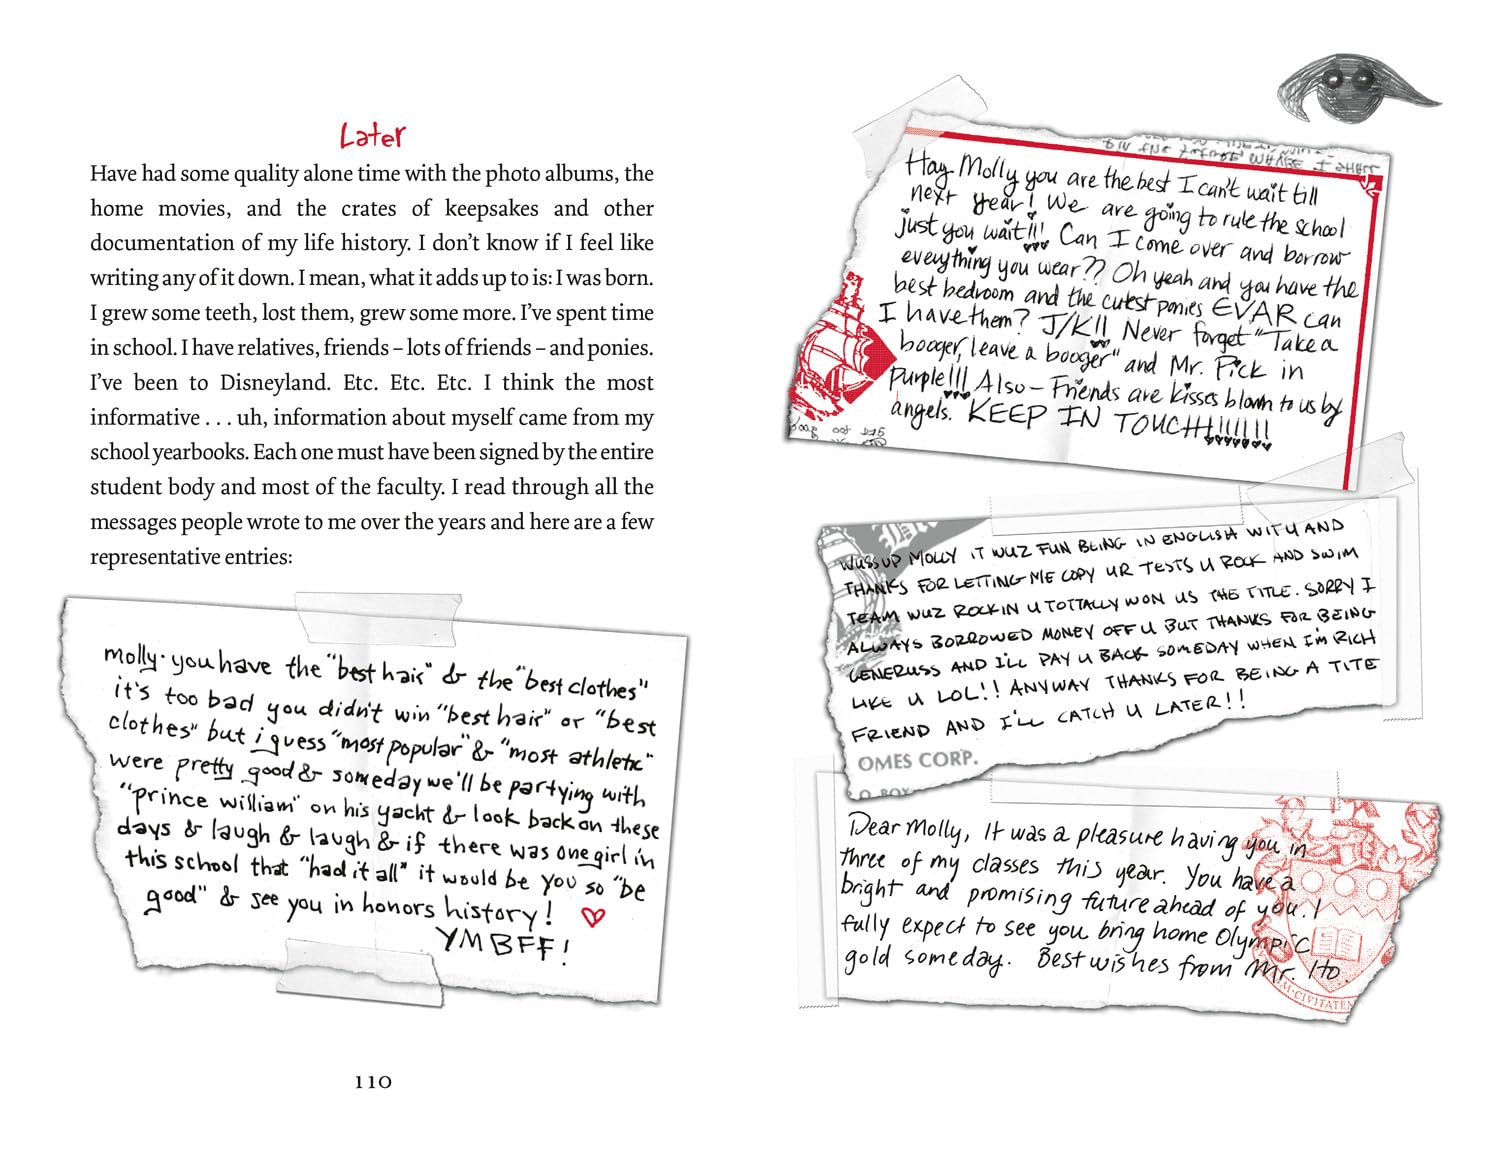 Later
Have had some quality alone time with the photo albums, the
home movies, and the crates of keepsakes and other
documentation of my life history. I don’t know if I feel like
writing any of it down. I mean, what it adds up to is: I was born.
I grew some teeth, lost them, grew some more. I’ve spent time
in school. I have relatives, friends – lots of friends – and ponies.
I’ve been to Disneyland. Etc. Etc. Etc. I think the most
informative . . . uh, information about myself came from my
school yearbooks. Each one must have been signed by the entire
student body and most of the faculty. I read through all the
messages people wrote to me over the years and here are a few
representative entries:
molly. you have the "best hair" & the "best clothes"
it's too bad you didn't win "best hair" or "best
clothes" but i guess "most popular" & "most athletic"
were pretty good & someday we'll be partying with
"prince william" on his yacht & look back on these
days & laugh & laugh & if there was one girl in
this school that "had it all" it would be you so "be
good" & see you in honors history!
YMBFF!
110
Hay Molly you are the best I can't wait till
next year! We are going to rule the school
just you wait!!! Can I come over and borrow
everything you wear?? Oh yeah and you have the
best bedroom and the cutest ponies EVAR can
I have them? J/K!! Never forget "Take a
booger, leave a booger" and Mr. Pick in
Purple!!! Also – Friends are kisses blown to us by
angels. KEEP IN TOUCH!!!!!!!
WUSSUP MOLLY IT WUZ FUN BEING IN ENGLISH WITH U AND
THANKS FOR LETTING ME COPY UR TESTS U ROCK AND SWIM
TEAM WUZ ROCKIN U TOTTALLY WON US THE TITLE. SORRY I
ALWAYS BORROWED MONEY OFF U BUT THANKS FOR BEING
GENERUSS AND I'LL PAY U BACK SOMEDAY WHEN I'M RICH
LIKE U LOL!! ANYWAY THANKS FOR BEING A TITE
FRIEND AND I'LL CATCH U LATER!!
OMES CORP.
O. BOX
Dear Molly, It was a pleasure having you in
three of my classes this year. You have a
bright and promising future ahead of you. I
fully expect to see you bring home Olympic
gold someday. Best wishes from Mr. Ito
M·CIVITATEN